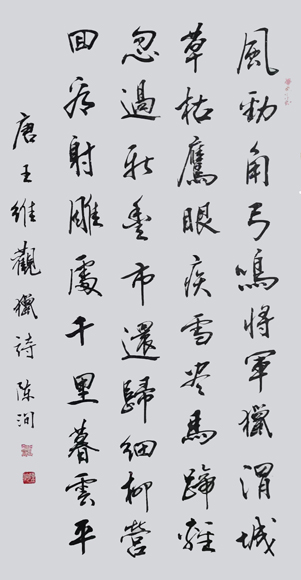 風勁角弓鳴将軍獵渭城
草枯鷹眼疾雪尽馬蹄輕
忽過新豐市還歸細柳營
回看射雕處千里暮雲平
唐王維觀獵詩 陈洵